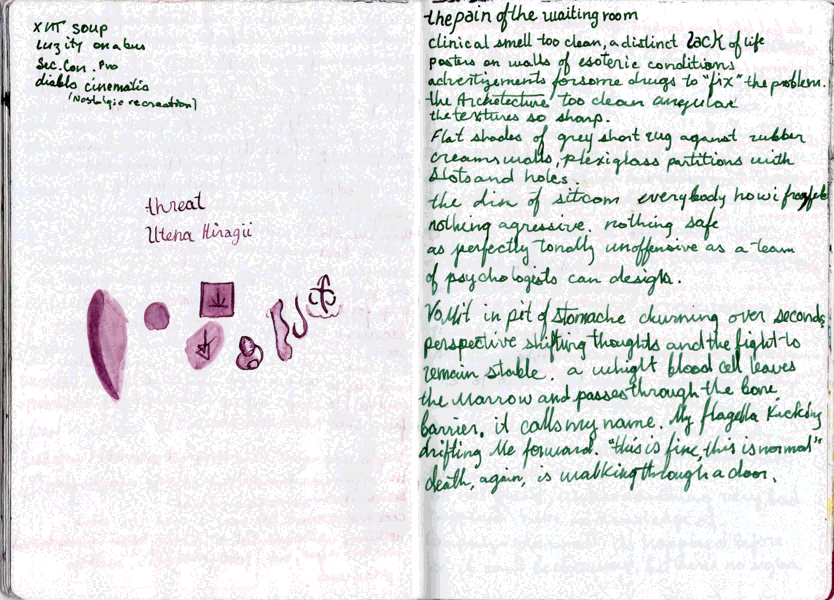 XNT SOUP
Luzity on a bus
Sec. Con. Pro
diablo cinematic
(Nostalgic recreation)
threat
Utena Hiragii
the pain of the waiting room
clinical smell too clean, a distinct lack of life
posters on walls of esoteric conditions
advertizements for some drugs to "fix" the problem.
the Architecture too clean angular
the textures so sharp.
Flat shades of grey short rug against rubber
creams walls, plexiglass partitions with
slots and holes.
the din of sitcom everybody how i
nothing agressive. nothing safe
as perfectly tonally unoffensive as a team
of psychologists can design.
Vomit in pit of stomache churning over seconds
perspective shifting thoughts and the fight to
remain stable. a whight blood cell leaves
the Marrow and passes through the bone
barrier. it calls my name. My flagella kicking
drifting Me forward. "this is fine, this is normal"
death, again, is walking through a door.